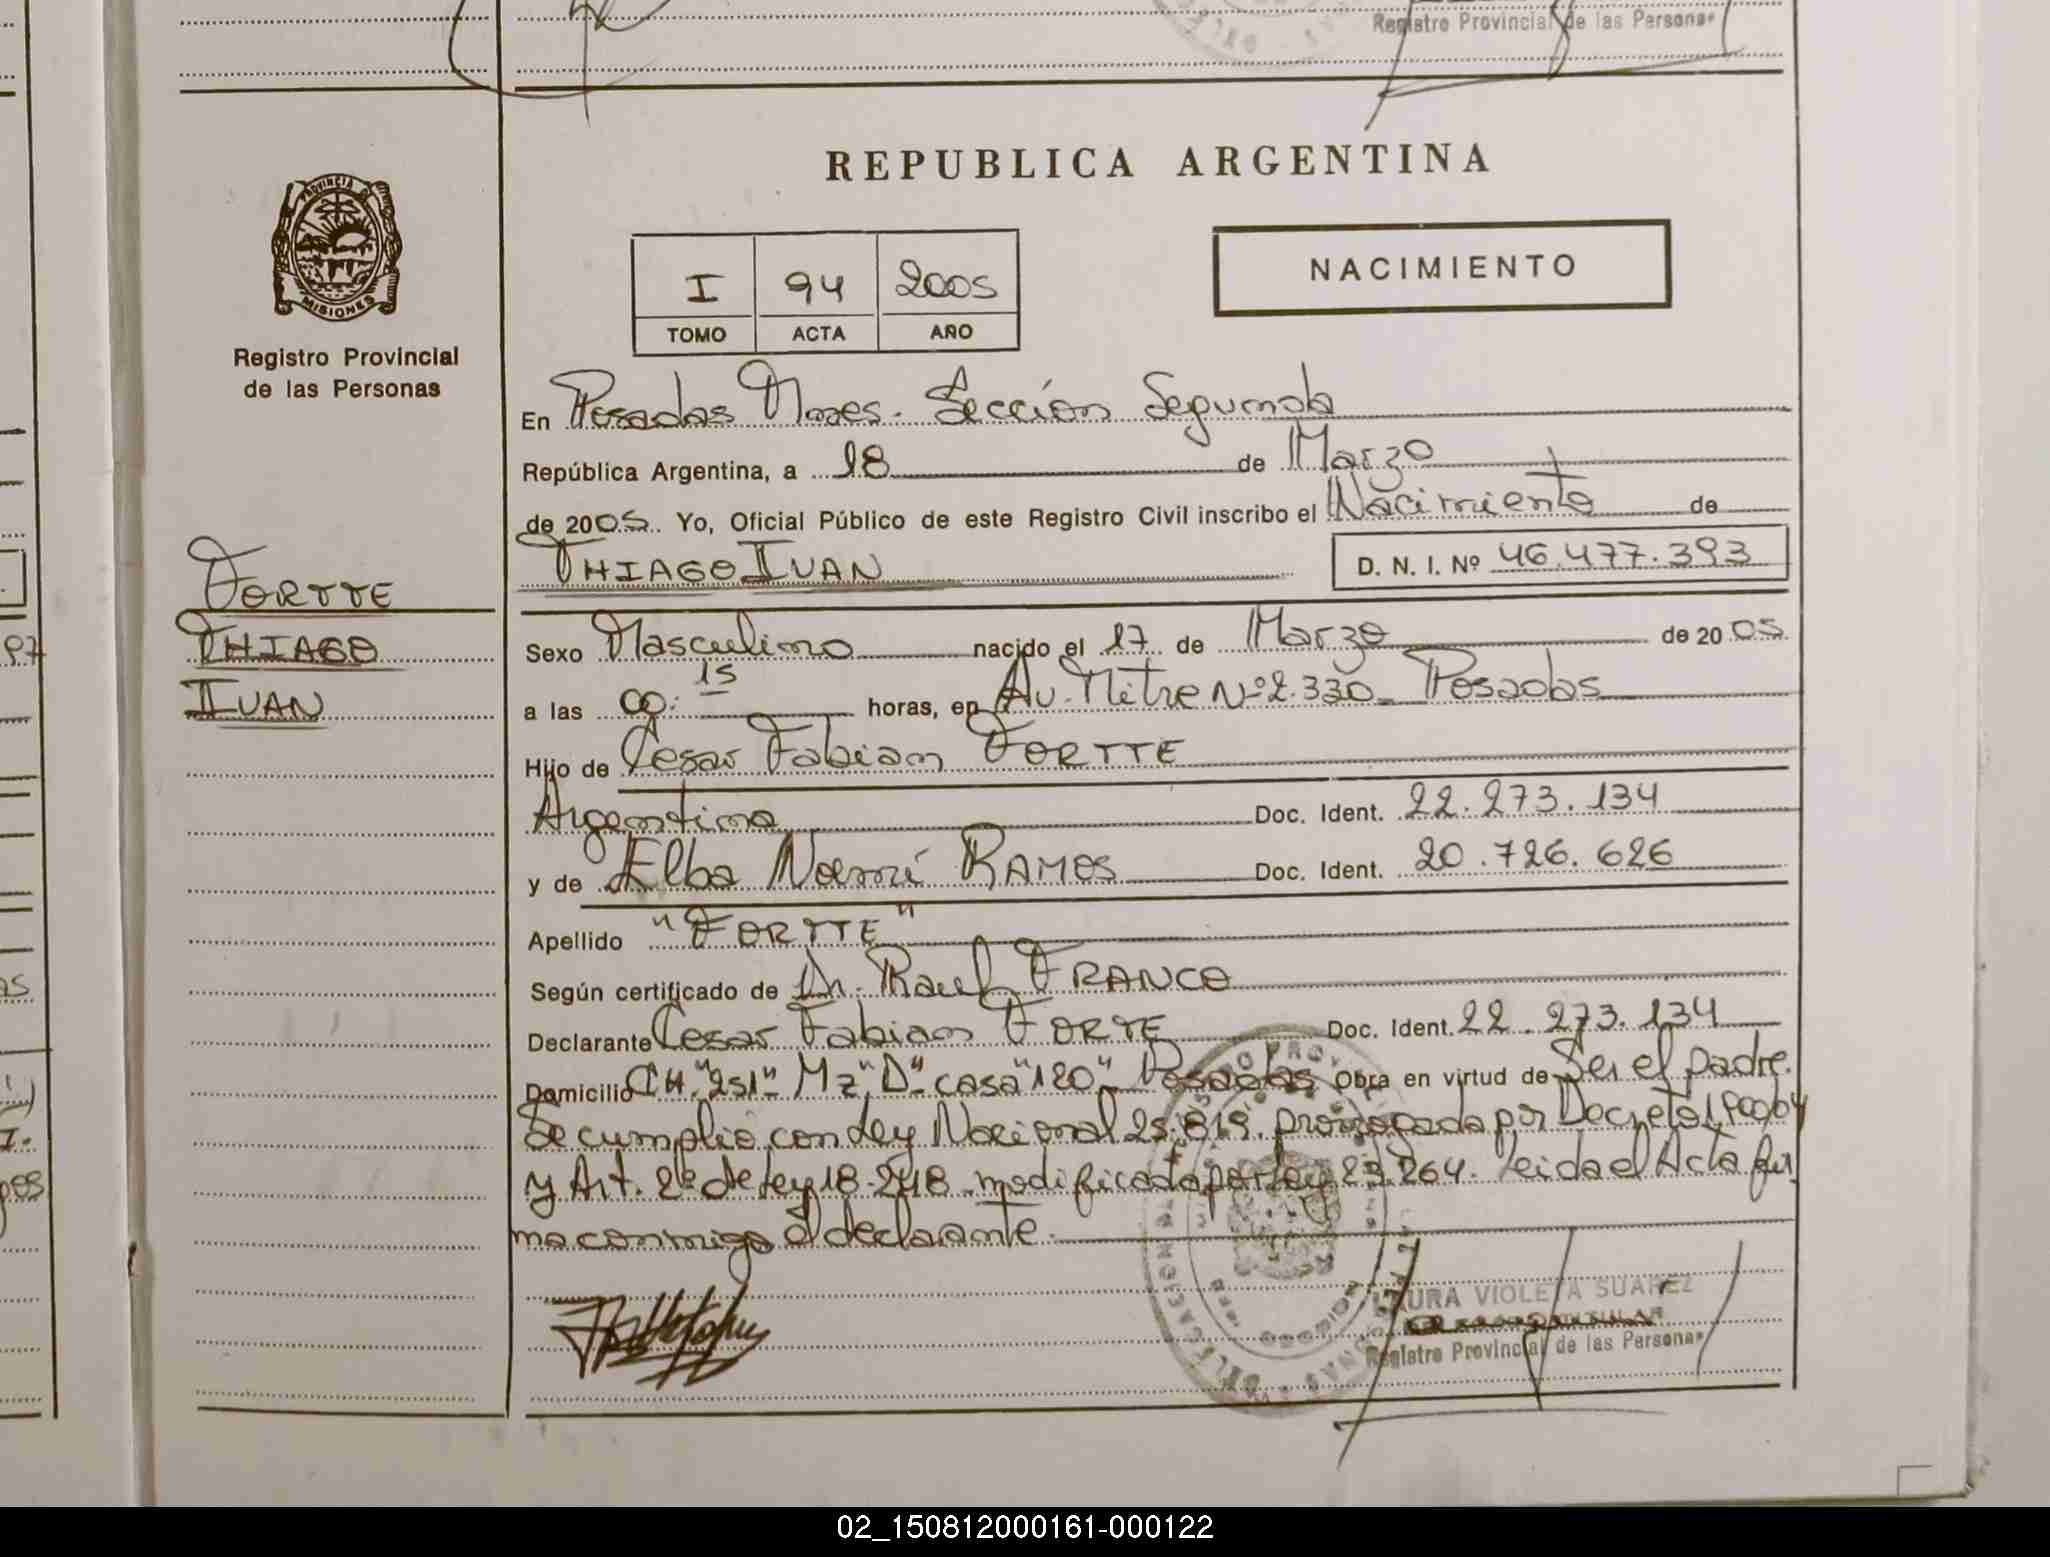 Registro Provincial de las Personas
REPUBLICA ARGENTINA
PROVINCIA DE
MISIONES
Registro Provincial
de las Personas
I 94 2005
TOMO ACTA AÑO
NACIMIENTO
En Posadas Mnes. Sección Segunda
República Argentina, a 18 de Marzo
de 2005. Yo, Oficial Público de este Registro Civil inscribo el Nacimiento de
THIAGO IVAN D. N. I. Nº 46.477.393
FORTTE
THIAGO
IVAN
Sexo Masculino nacido el 17 de Marzo de 2005
a las 00:15 horas, en Av. Mitre Nº 2.330 Posadas
Hijo de Cesar Fabian FORTTE
Argentina Doc. Ident. 22.273.134
y de Elba Noemí RAMOS Doc. Ident. 20.726.626
Apellido "FORTTE"
Según certificado de Dr. Raul FRANCO
Declarante Cesar Fabian FORTE Doc. Ident. 22.273.134
Domicilio CH. "251" Mz "D" casa "120" Posadas Obra en virtud de Ser el padre.
Se cumplio con Ley Nacional 25.819. prorrogada por Decreto
y Art. 2º de Ley 18.248 modificada por Ley 23.264. Leida el Acta fir
ma conmigo el declarante.
LAURA VIOLETA SUAREZ
Registro Provincial de las Personas
02_150812000161-000122